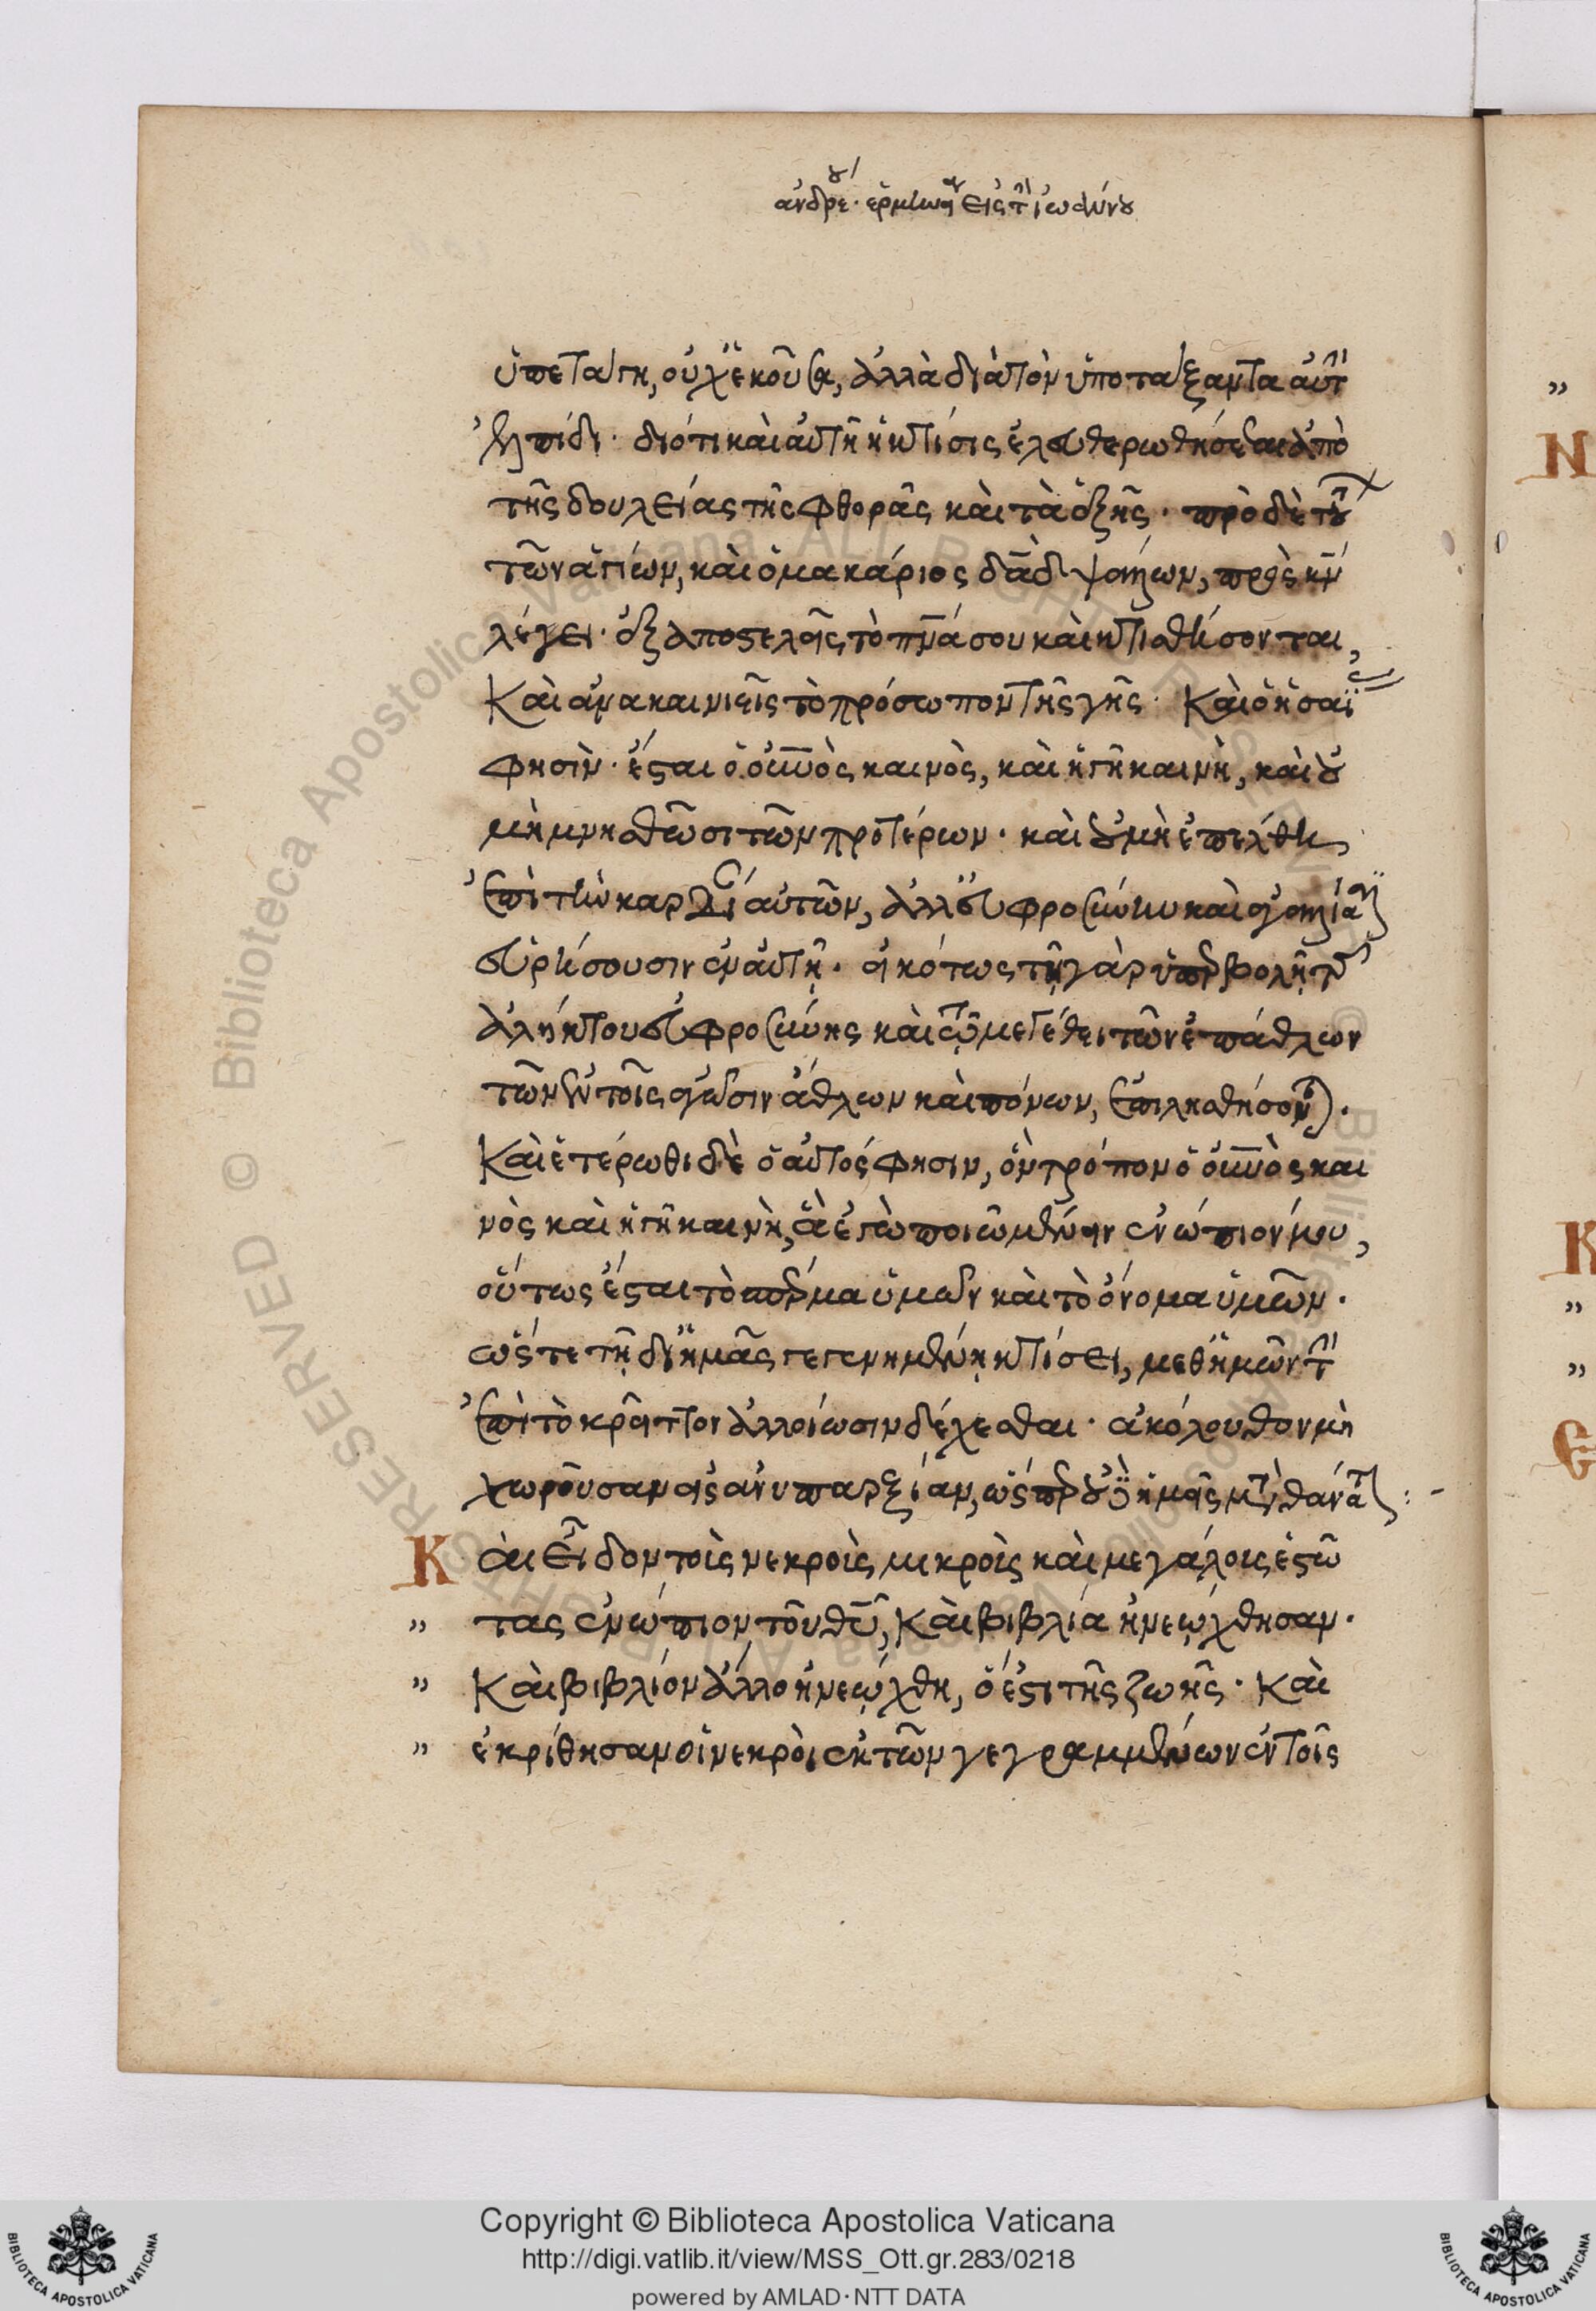 ἀνδρέου ἑρμηνεία εἰς τὴν ἰωάννου
ὑπετάγη, οὐχ ἑκοῦσα, ἀλλὰ διὰ τὸν ὑποτάξαντα αὐτὴν
ἐλπίδι· διότι καὶ αὐτὴ ἡ κτίσις ἐλευθερωθήσεται ἀπὸ
τῆς δουλείας τῆς φθορᾶς καὶ τὰ ἑξῆς· πρὸ δὲ τούτων
τῶν ἁγίων, καὶ ὁ μακάριος δαδ ψάλλων, πρὸς κν
λέγει· ἐξαποστελεῖς τὸ πνα σου καὶ κτισθήσονται,
Καὶ ἀνακαινιεῖς τὸ πρόσωπον τῆς γῆς· Καὶ ὁ ἡσαΐας
φησὶν· ἔσται ὁ οὐνος καινὸς, καὶ ἡ γῆ καινὴ, καὶ οὐ
μὴ μνησθῶσι τῶν προτέρων· καὶ οὐ μὴ ἐπέλθη
ἐπὶ τὴν καρδίαν αὐτῶν, ἀλλ' εὐφροσύνην καὶ ἀγαλλίασιν
εὑρήσουσιν ἐν αὐτῇ· εἰκότως τῇ γὰρ ὑπερβολῇ τῆς
ἀλήκτου εὐφροσύνης καὶ τῷ μεγέθει τῶν ἐπάθλων
τῶν ἐν τοῖς ἀγῶσιν ἄθλων καὶ πόνων, ἐπιλησθήσονται.
Καὶ ἑτέρωθι δὲ ὁ αὐτός φησιν, ὃν τρόπον ὁ οὐνος και
νὸς καὶ ἡ γῆ καινὴ, ἃ ἐγὼ ποιῶ μένειν ἐνώπιόν μου,
οὕτως ἔσται τὸ σπέρμα ὑμῶν καὶ τὸ ὄνομα ὑμῶν.
ὥστε τῇ δι' ἡμᾶς γεγενημένῃ κτίσει, μεθ' ἡμῶν τὴν
ἐπὶ τὸ κρεῖττον ἀλλοίωσιν δέχεσθαι· ἀκόλουθον μὴ
χωροῦσαν εἰς ἀνυπαρξίαν, ὥσπερ οὐδὲ ἡμεῖς μετὰ τὸν θάνατον:-
Καὶ εἶδον τοὺς νεκροὺς μικροὺς καὶ μεγάλους ἑστῶ
" τας ἐνώπιον τοῦ θυ, Καὶ βιβλία ἠνεῴχθησαν.
" Καὶ βιβλίον ἄλλο ἠνεῴχθη, ὅ ἐστι τῆς ζωῆς· Καὶ
" ἐκρίθησαν οἱ νεκροὶ ἐκ τῶν γεγραμμένων ἐν τοῖς
"
N
K
"
"
Ε
Copyright © Biblioteca Apostolica Vaticana
http://digi.vatlib.it/view/MSS_Ott.gr.283/0218
powered by AMLAD·NTT DATA
BIBLIOTECA APOSTOLICA VATICANA
BIBLIOTECA APOSTOLICA VATICANA